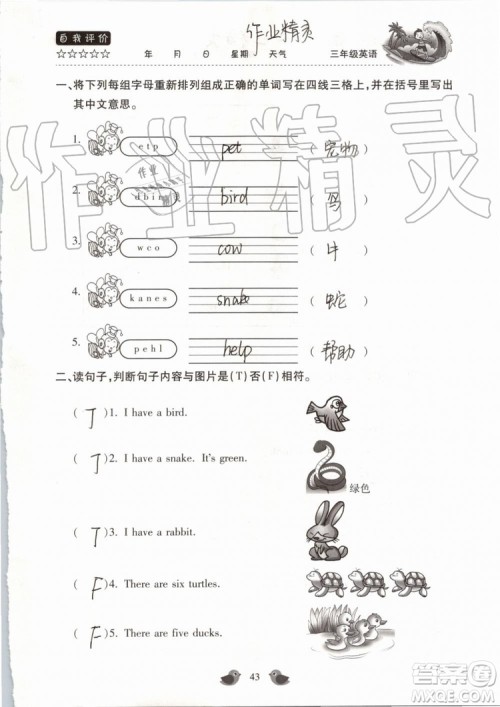 自我评价
作业精灵
☆☆☆☆☆ 年 月 日 星期 天气 三年级英语
一、将下列每组字母重新排列组成正确的单词写在四线三格上,并在括号里写出
其中文意思。
1. etp pet (宠物)
2. dbir bird (鸟)
3. wco cow (牛)
4. kanes snake (蛇)
5. pehl help (帮助)
二、读句子,判断句子内容与图片是(T)否(F)相符。
(T)1. I have a bird.
(T)2. I have a snake. It's green.
绿色
(T)3. I have a rabbit.
(F)4. There are six turtles.
(F)5. There are five ducks.
43
作业精灵
答案圈
MXQE.COM